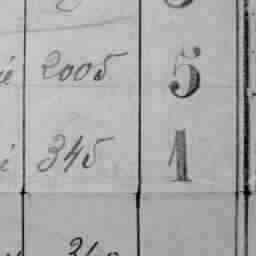 é 2005 5
é 345 1